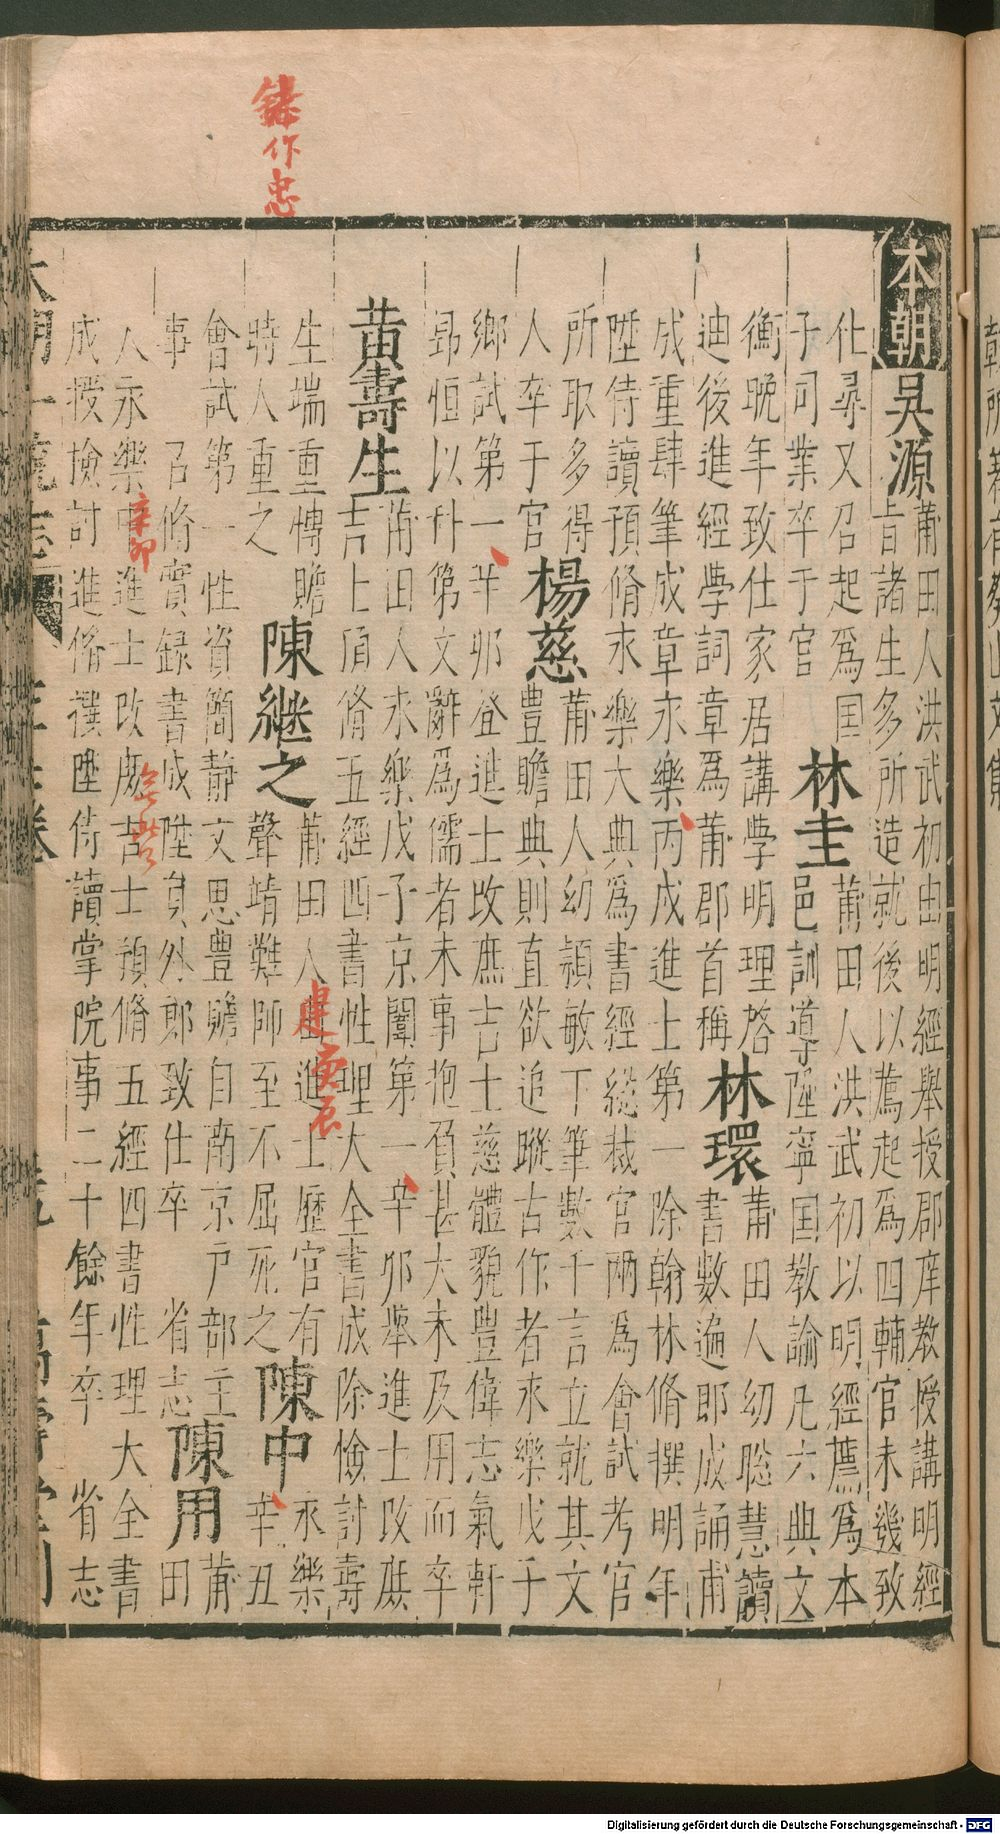 錄作忠
本朝
吳源
莆田人洪武初由明經舉授郡庠教授講明經
旨諸生多所造就後以薦起為四輔官未幾致
仕尋又召起為国
子司業卒于官
林圭
莆田人洪武初以明經薦為本
邑訓導陞寧国教諭凡六典文
衡晚年致仕家居講學明理啓
迪後進經學詞章為莆郡首稱
林環
莆田人幼聡慧讀
書數遍即成誦甫
成重肆筆成章永樂丙戌進士第一除翰林脩撰明年
陞侍讀預脩永樂大典為書經總裁官兩為會試考官
所取多得
人卒于官
楊慈
莆田人幼穎敏下筆數千言立就其文
豊贍典則直欲追蹤古作者永樂戊子
鄉試第一辛卯登進士改庶吉士慈體貌豊偉志氣軒
昻恒以科第文辭為儒者末事抱負甚大未及用而卒
黃壽生
莆田人永樂戊子京闈第一辛卯舉進士改庶
吉士預脩五經四書性理大全書成除檢討壽
生端重愽贍
時人重之
陳継之
莆田人由進士歷官有
聲靖難師至不屈死之
建
庚辰
陳中
永樂
辛丑
會試第一性資簡靜文思豊贍自南京戶部主
事召脩實録書成陞員外郎致仕卒 省志
陳用
莆
田
人永樂中進士改庶吉士預脩五經四書性理大全書
成授檢討進脩撰陞侍讀掌院事二十餘年卒 省志
辛卯
大明一統志
Digitalisierung gefördert durch die Deutsche Forschungsgemeinschaft - DFG